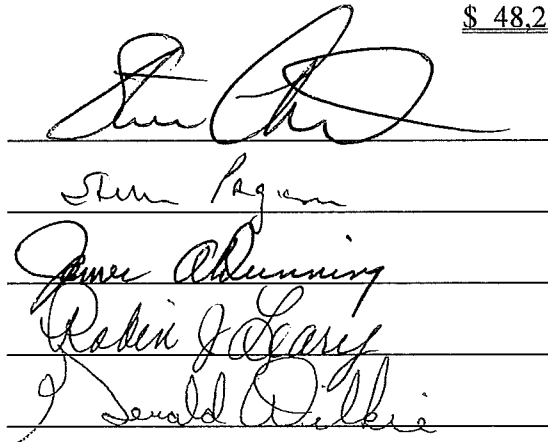 $ 48,2
Steve
Steve
James A Dunning
Robin J Leary
J Gerald Wilkie